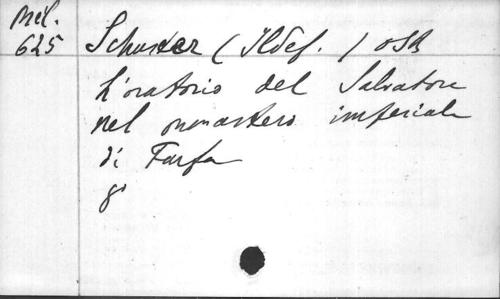 Mil.
625
Schuster (Ildef.) OSB
L'oratorio del Salvatore
nel monastero imperiale
di Farfa
8°